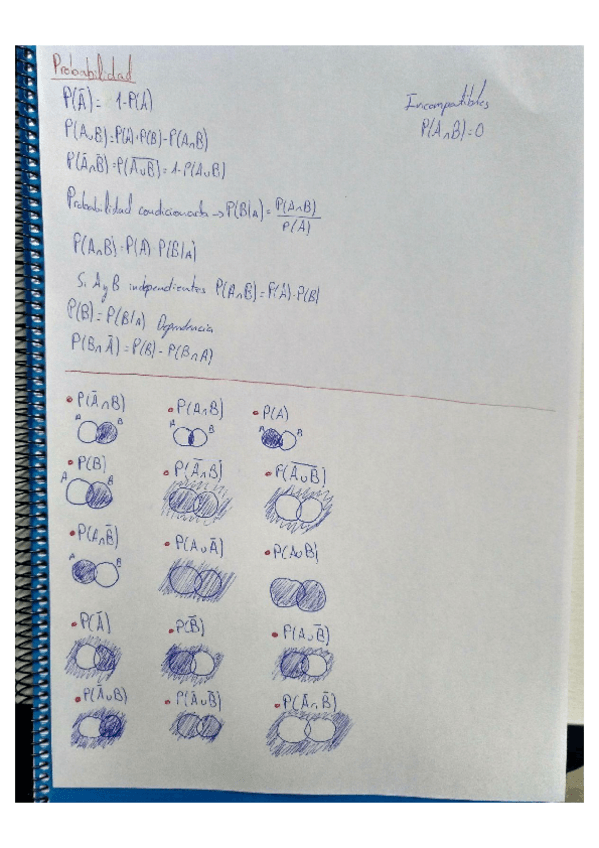 Probabilidad
P(Ā) = 1-P(A)
Incompatibles
P(A∩B)=0
P(A∪B)=P(A)+P(B)-P(A∩B)
P(Ā∩B̄)=P(A̅∪̅B̅)=1-P(A∪B)
Probabilidad condicionada → P(B|A) = P(A∩B)/P(A)
P(A∩B)=P(A)·P(B|A)
Si A y B independientes P(A∩B)=P(A)·P(B)
P(B) = P(B/A) Dependencia
P(B∩Ā)=P(B)-P(B∩A)
• P(Ā∩B) • P(A∩B) • P(A)
A B A B A B
• P(B) • P(A̅∩̅B̅) • P(A̅∪̅B̅)
A B
• P(A∩B̄) • P(A∪Ā) • P(A∪B)
A B
• P(Ā) • P(B̄) • P(A∪B̄)
• P(Ā∪B) • P(Ā∪B̄) • P(Ā∩B̄)